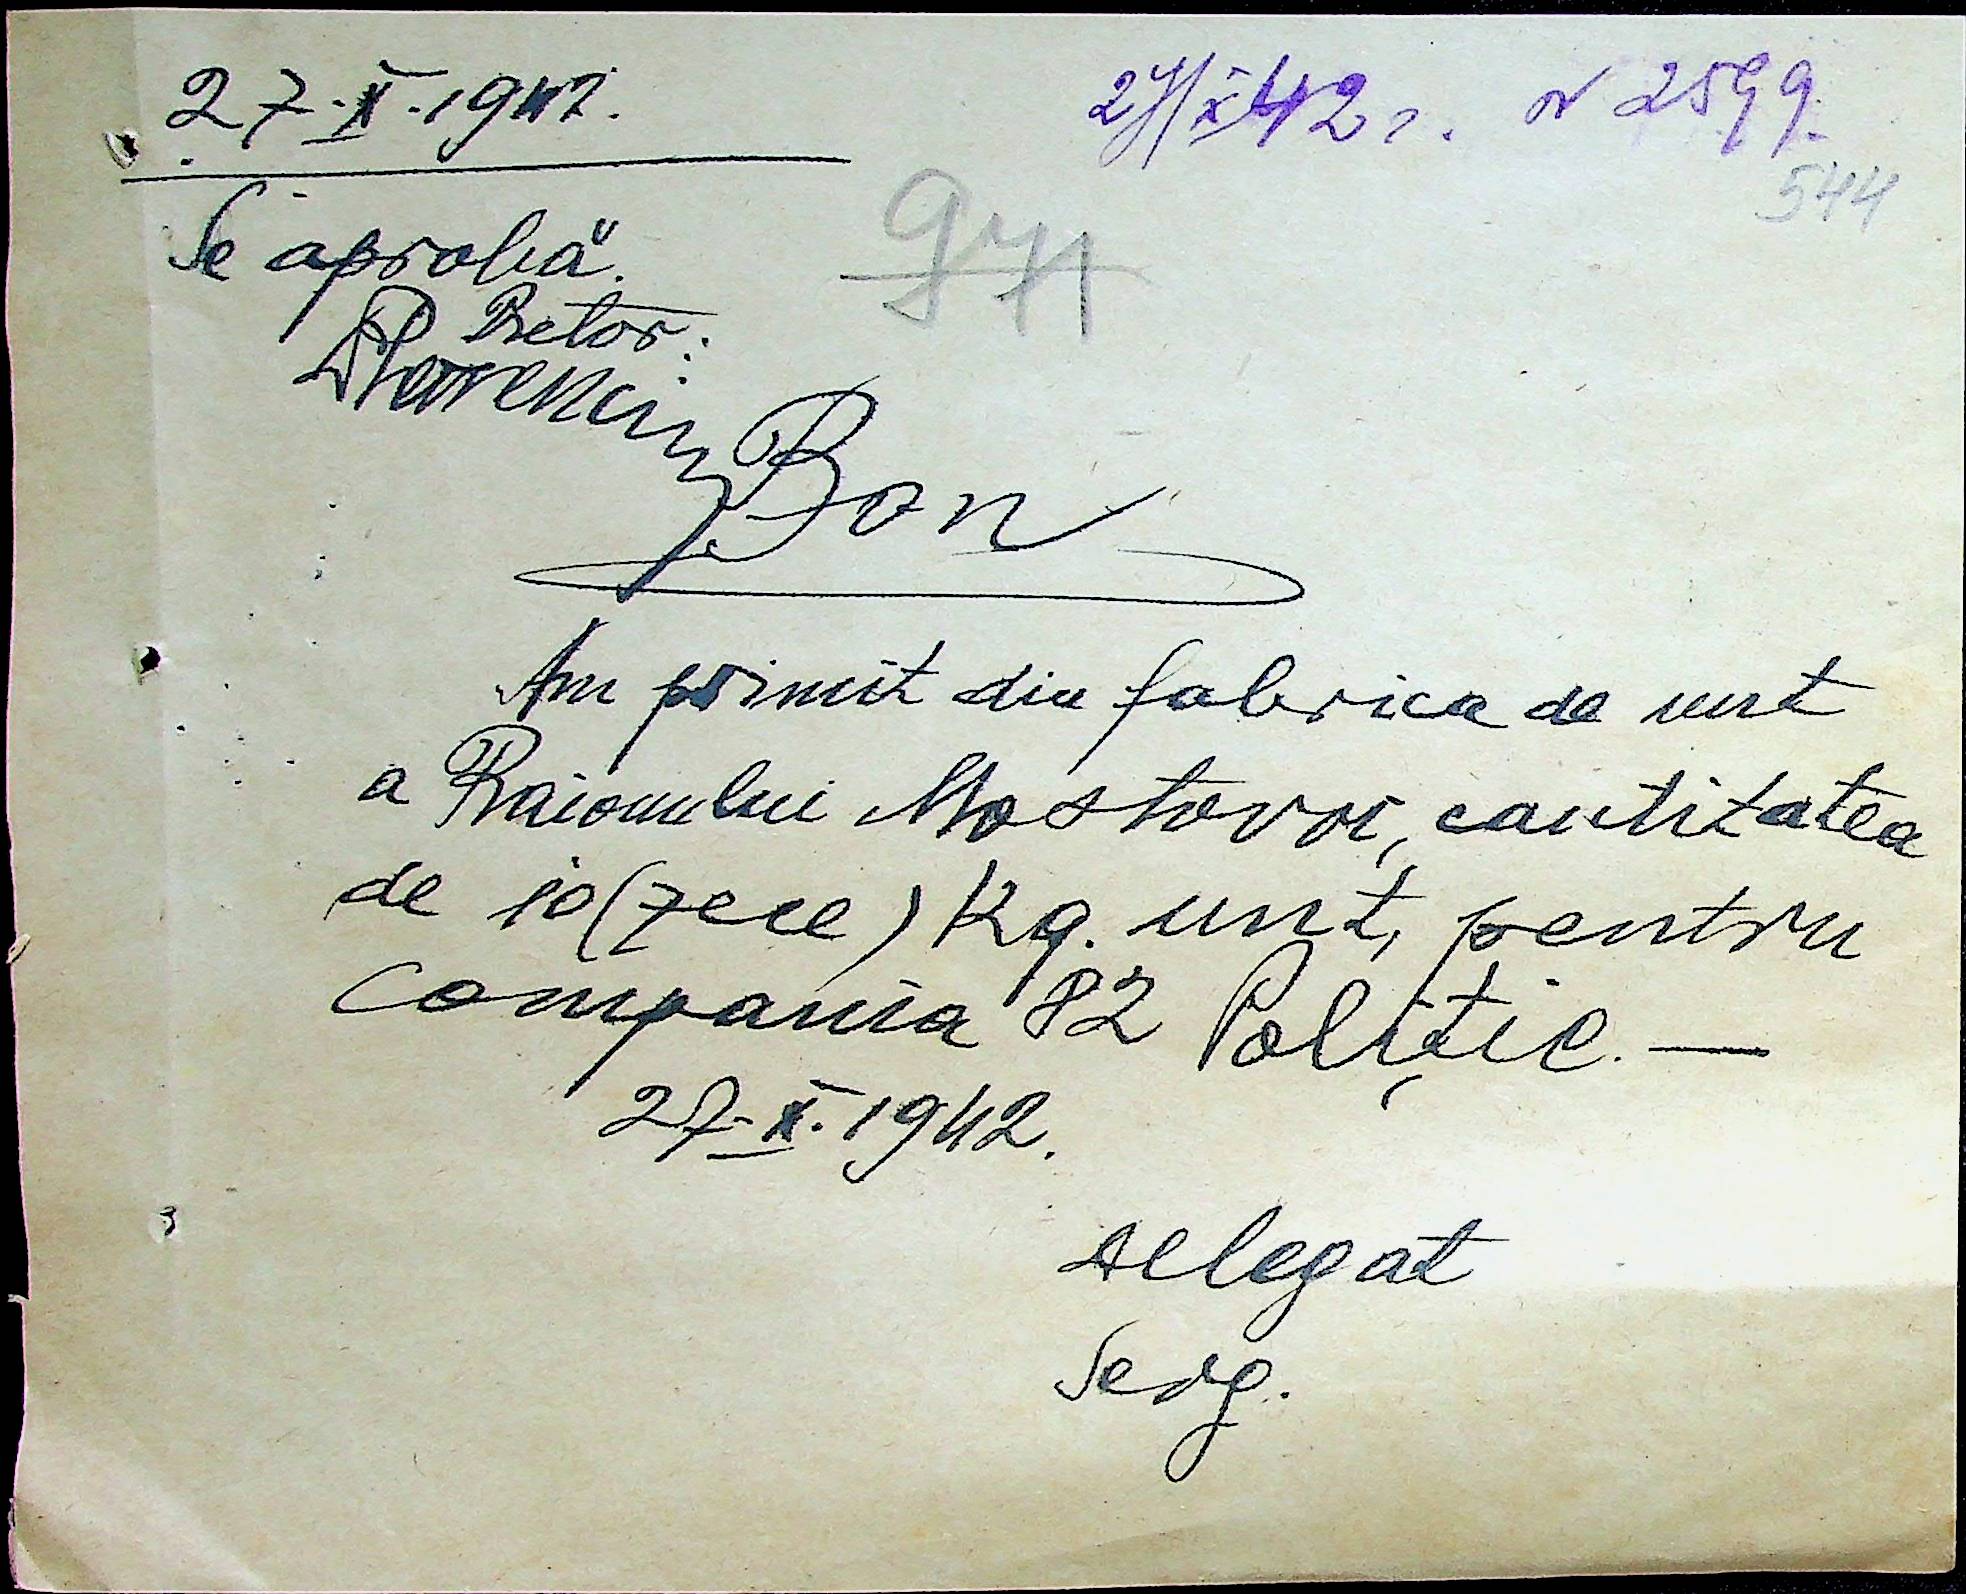 27·X·1942.
27/X 42 г. N 2599.
544
Se aprobă.
971
Pretor:
Bon
Am primit din fabrica de unt
a Raionului Mostovoi, cantitatea
de 10 (zece) Kg. unt, pentru
Compania 82 Poliție. —
27·X·1942.
Delegat
Serg.